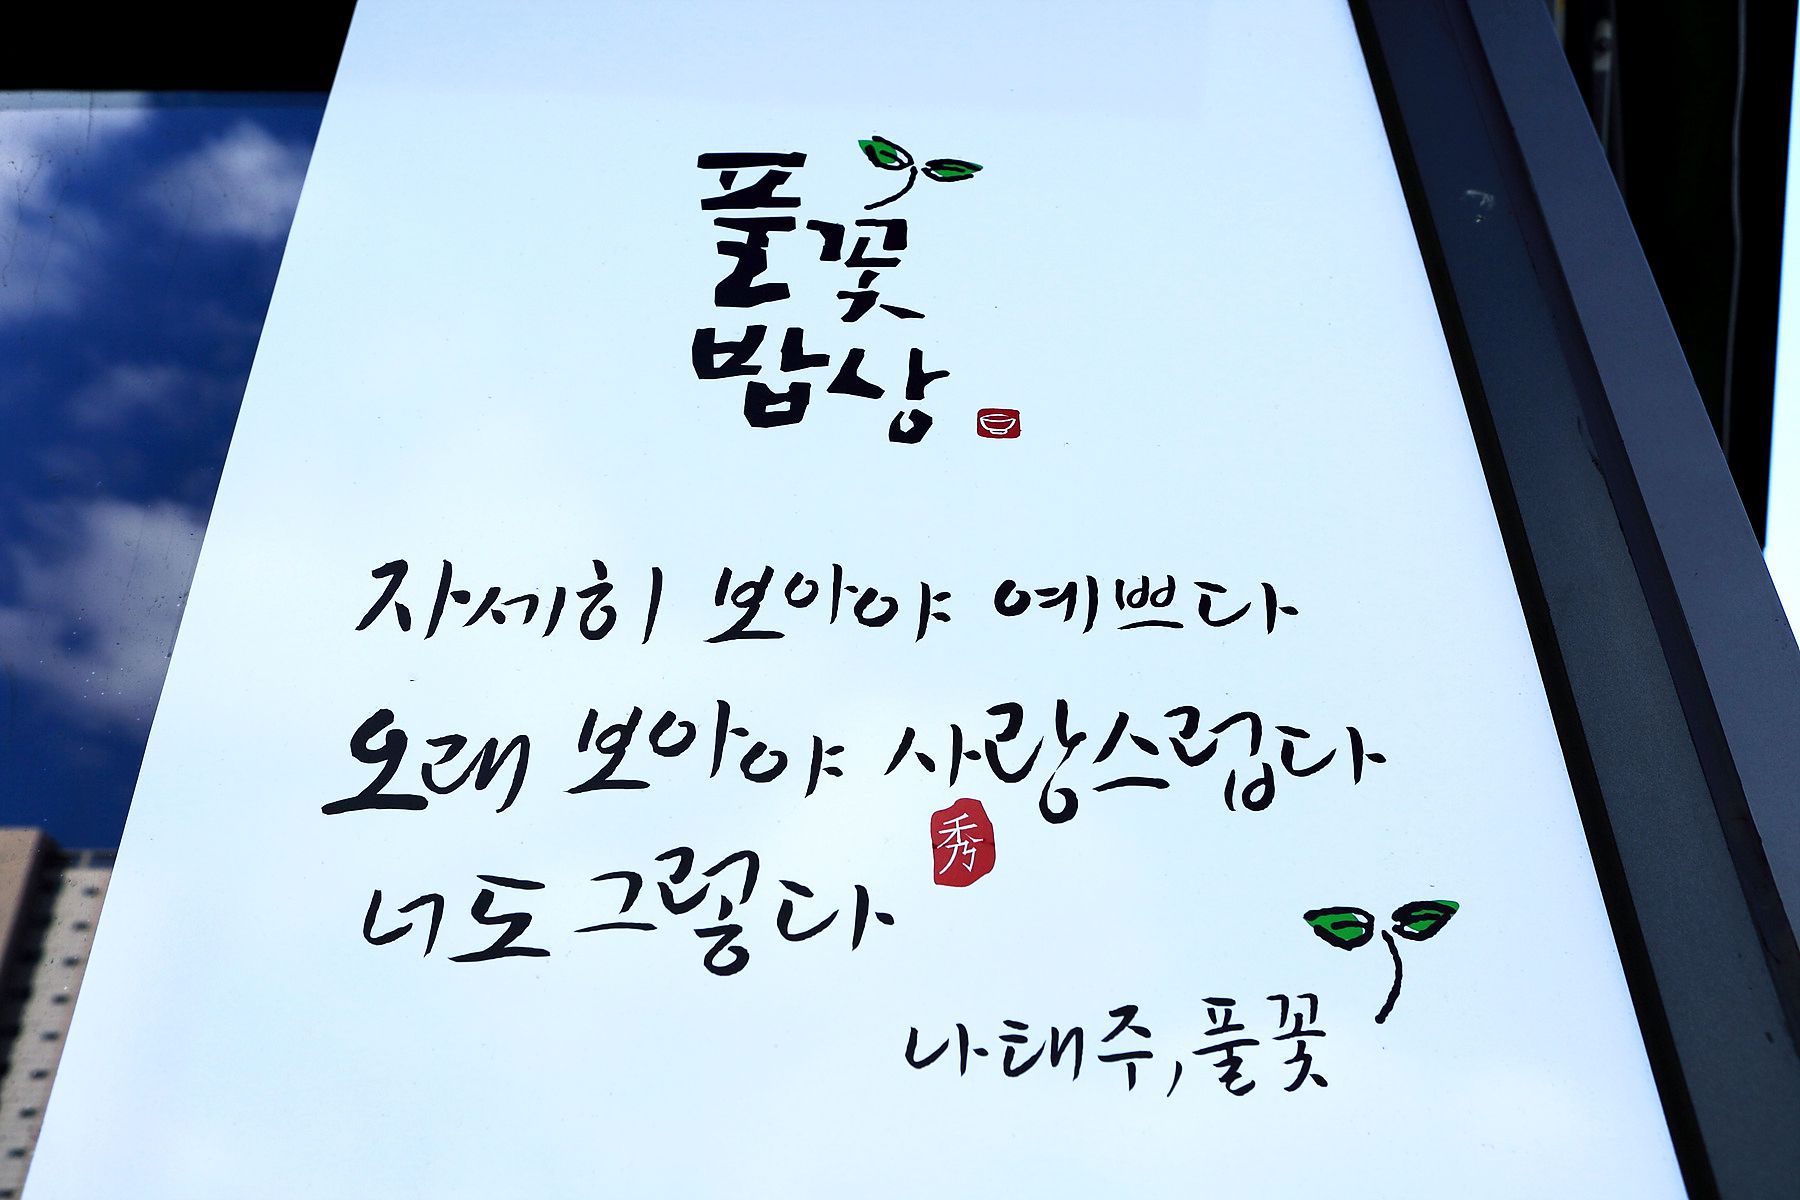 풀꽃
밥상
자세히 보아야 예쁘다
오래 보아야 사랑스럽다
너도 그렇다
秀
나태주, 풀꽃